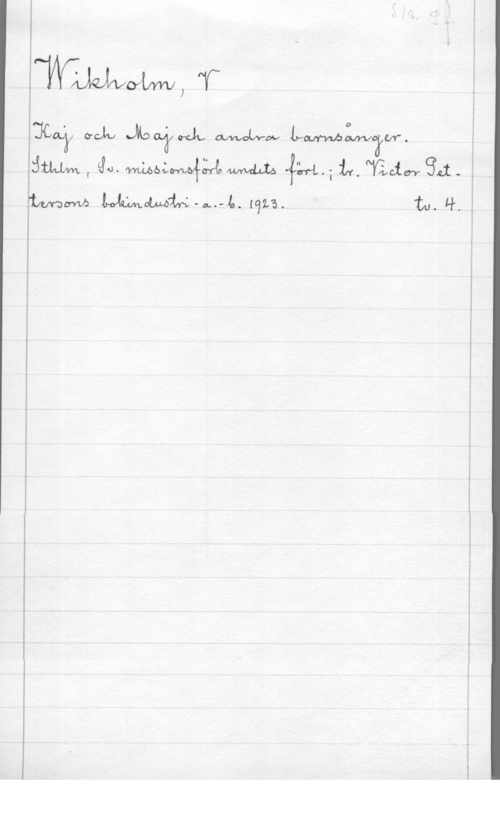 Wikholm, V
Kaj och Maj och andra barnsånger.
Sthlm, Sv. missionsförbundets förl.; tr. Victor Pet-
tersons bokindustri-a.-b. 1923. tv. 4.